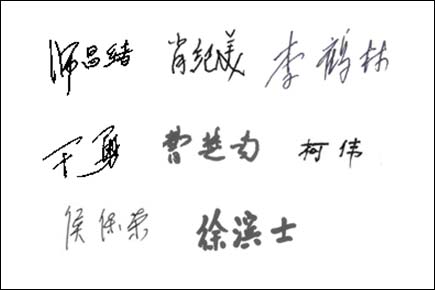 师昌绪 肖纪美 李鹤林
干勇 曹楚南 柯伟
侯保荣 徐滨士